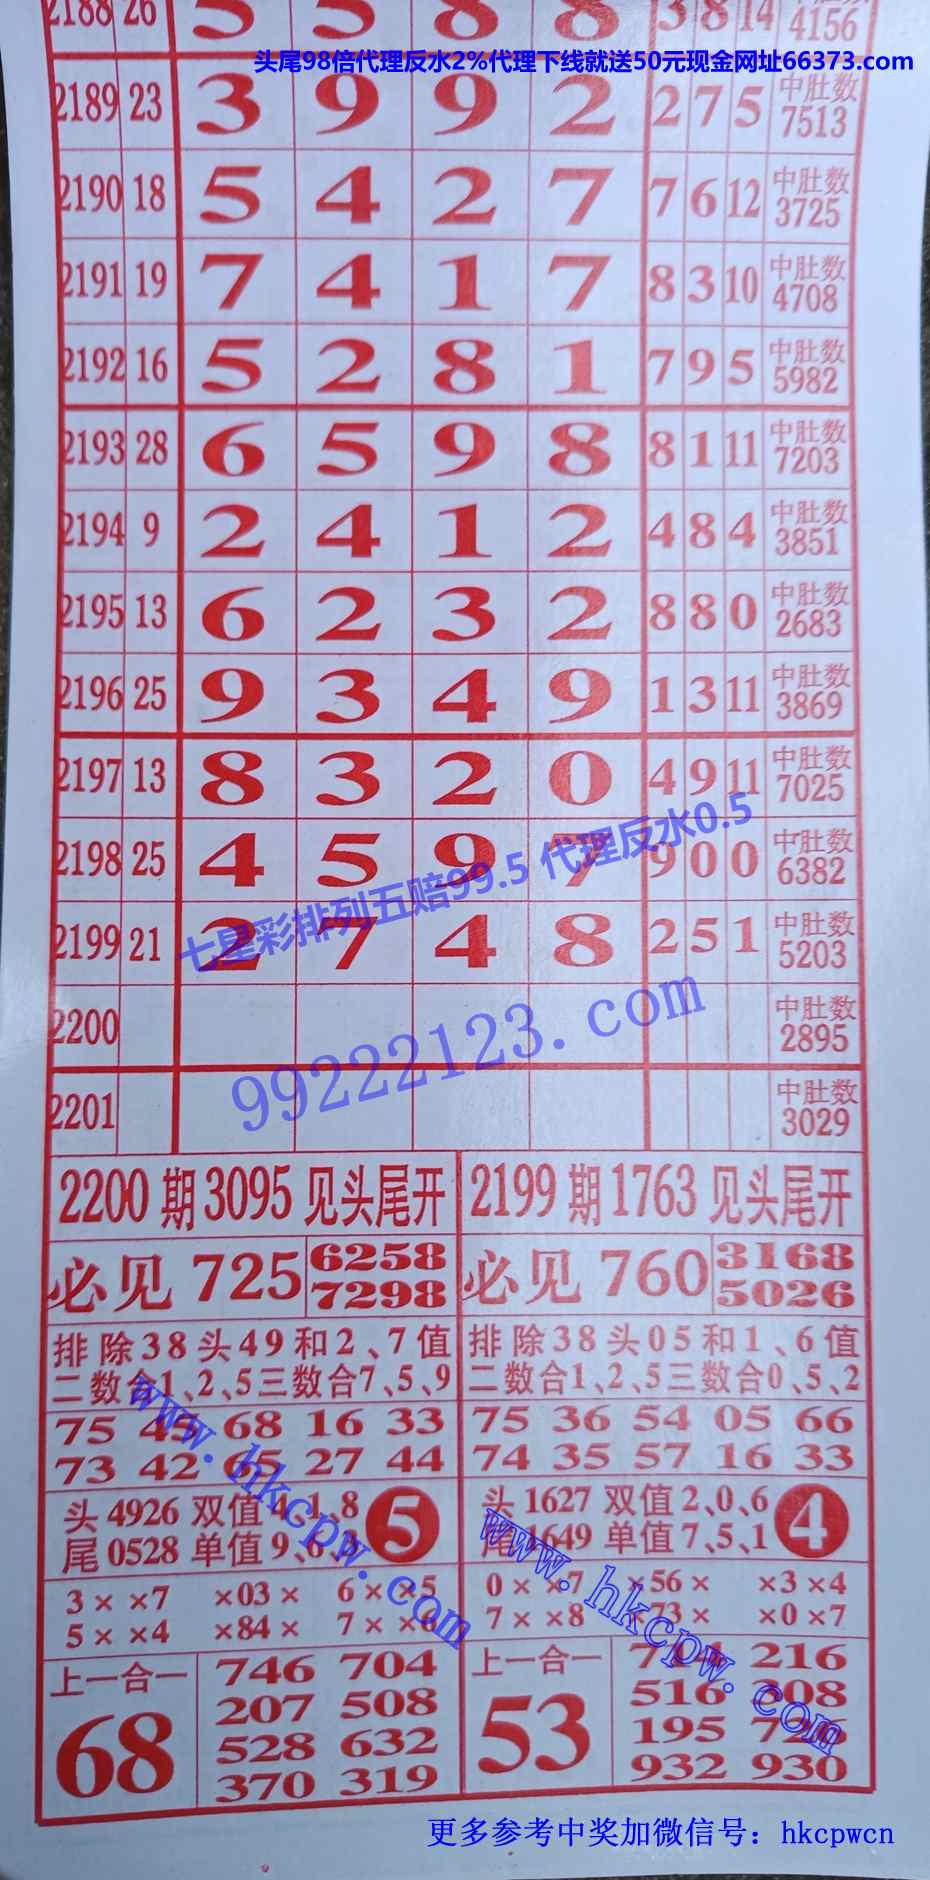 2188 26 5 5 8 8 3 8 14 中肚数 4156
头尾98倍代理反水2%代理下线就送50元现金网址66373.com
2189 23 3 9 9 2 2 7 5 中肚数 7513
2190 18 5 4 2 7 7 6 12 中肚数 3725
2191 19 7 4 1 7 8 3 10 中肚数 4708
2192 16 5 2 8 1 7 9 5 中肚数 5982
2193 28 6 5 9 8 8 1 11 中肚数 7203
2194 9 2 4 1 2 4 8 4 中肚数 3851
2195 13 6 2 3 2 8 8 0 中肚数 2683
2196 25 9 3 4 9 1 3 11 中肚数 3869
2197 13 8 3 2 0 4 9 11 中肚数 7025
2198 25 4 5 9 7 9 0 0 中肚数 6382
七星彩排列五赔99.5 代理反水0.5
2199 21 2 7 4 8 2 5 1 中肚数 5203
2200 中肚数 2895
99222123.com
2201 中肚数 3029
2200期3095见头尾开
必见725 6258
7298
排除38头49和2、7值
二数合1、2、5三数合7、5、9
75 45 68 16 33
73 42 65 27 44
头4926 双值4、1、8
尾0528 单值9、6、
5
3××7 ×03× 6××5
5××4 ×84× 7××6
上一合一
68
746 704
207 508
528 632
370 319
2199期1763见头尾开
必见760 3168
5026
排除38头05和1、6值
二数合1、2、5三数合0、5、2
75 36 54 05 66
74 35 57 16 33
头1627 双值2、0、6
尾1649 单值7、5、1
4
0××7 ×56× ×3×4
7××8 ×73× ×0×7
上一合一
53
714 216
516 308
195 726
932 930
www.hkcpw.com
www.hkcpw.com
更多参考中奖加微信号：hkcpwcn